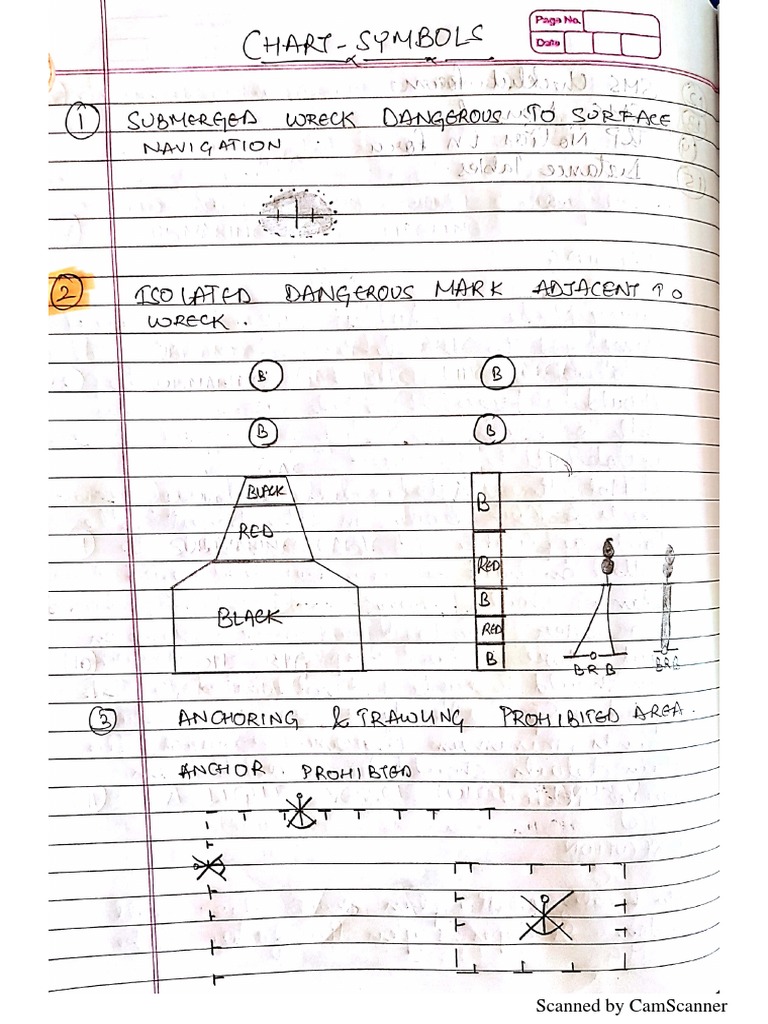 Page No.
Date
CHART-SYMBOLS
① SUBMERGED WRECK DANGEROUS TO SURFACE
NAVIGATION
② ISOLATED DANGEROUS MARK ADJACENT TO
WRECK.
B B
B B
BLACK
RED
BLACK
B
RED
B
RED
B
B R B
B R B
③ ANCHORING & TRAWLING PROHIBITED AREA.
ANCHOR PROHIBITED
Scanned by CamScanner